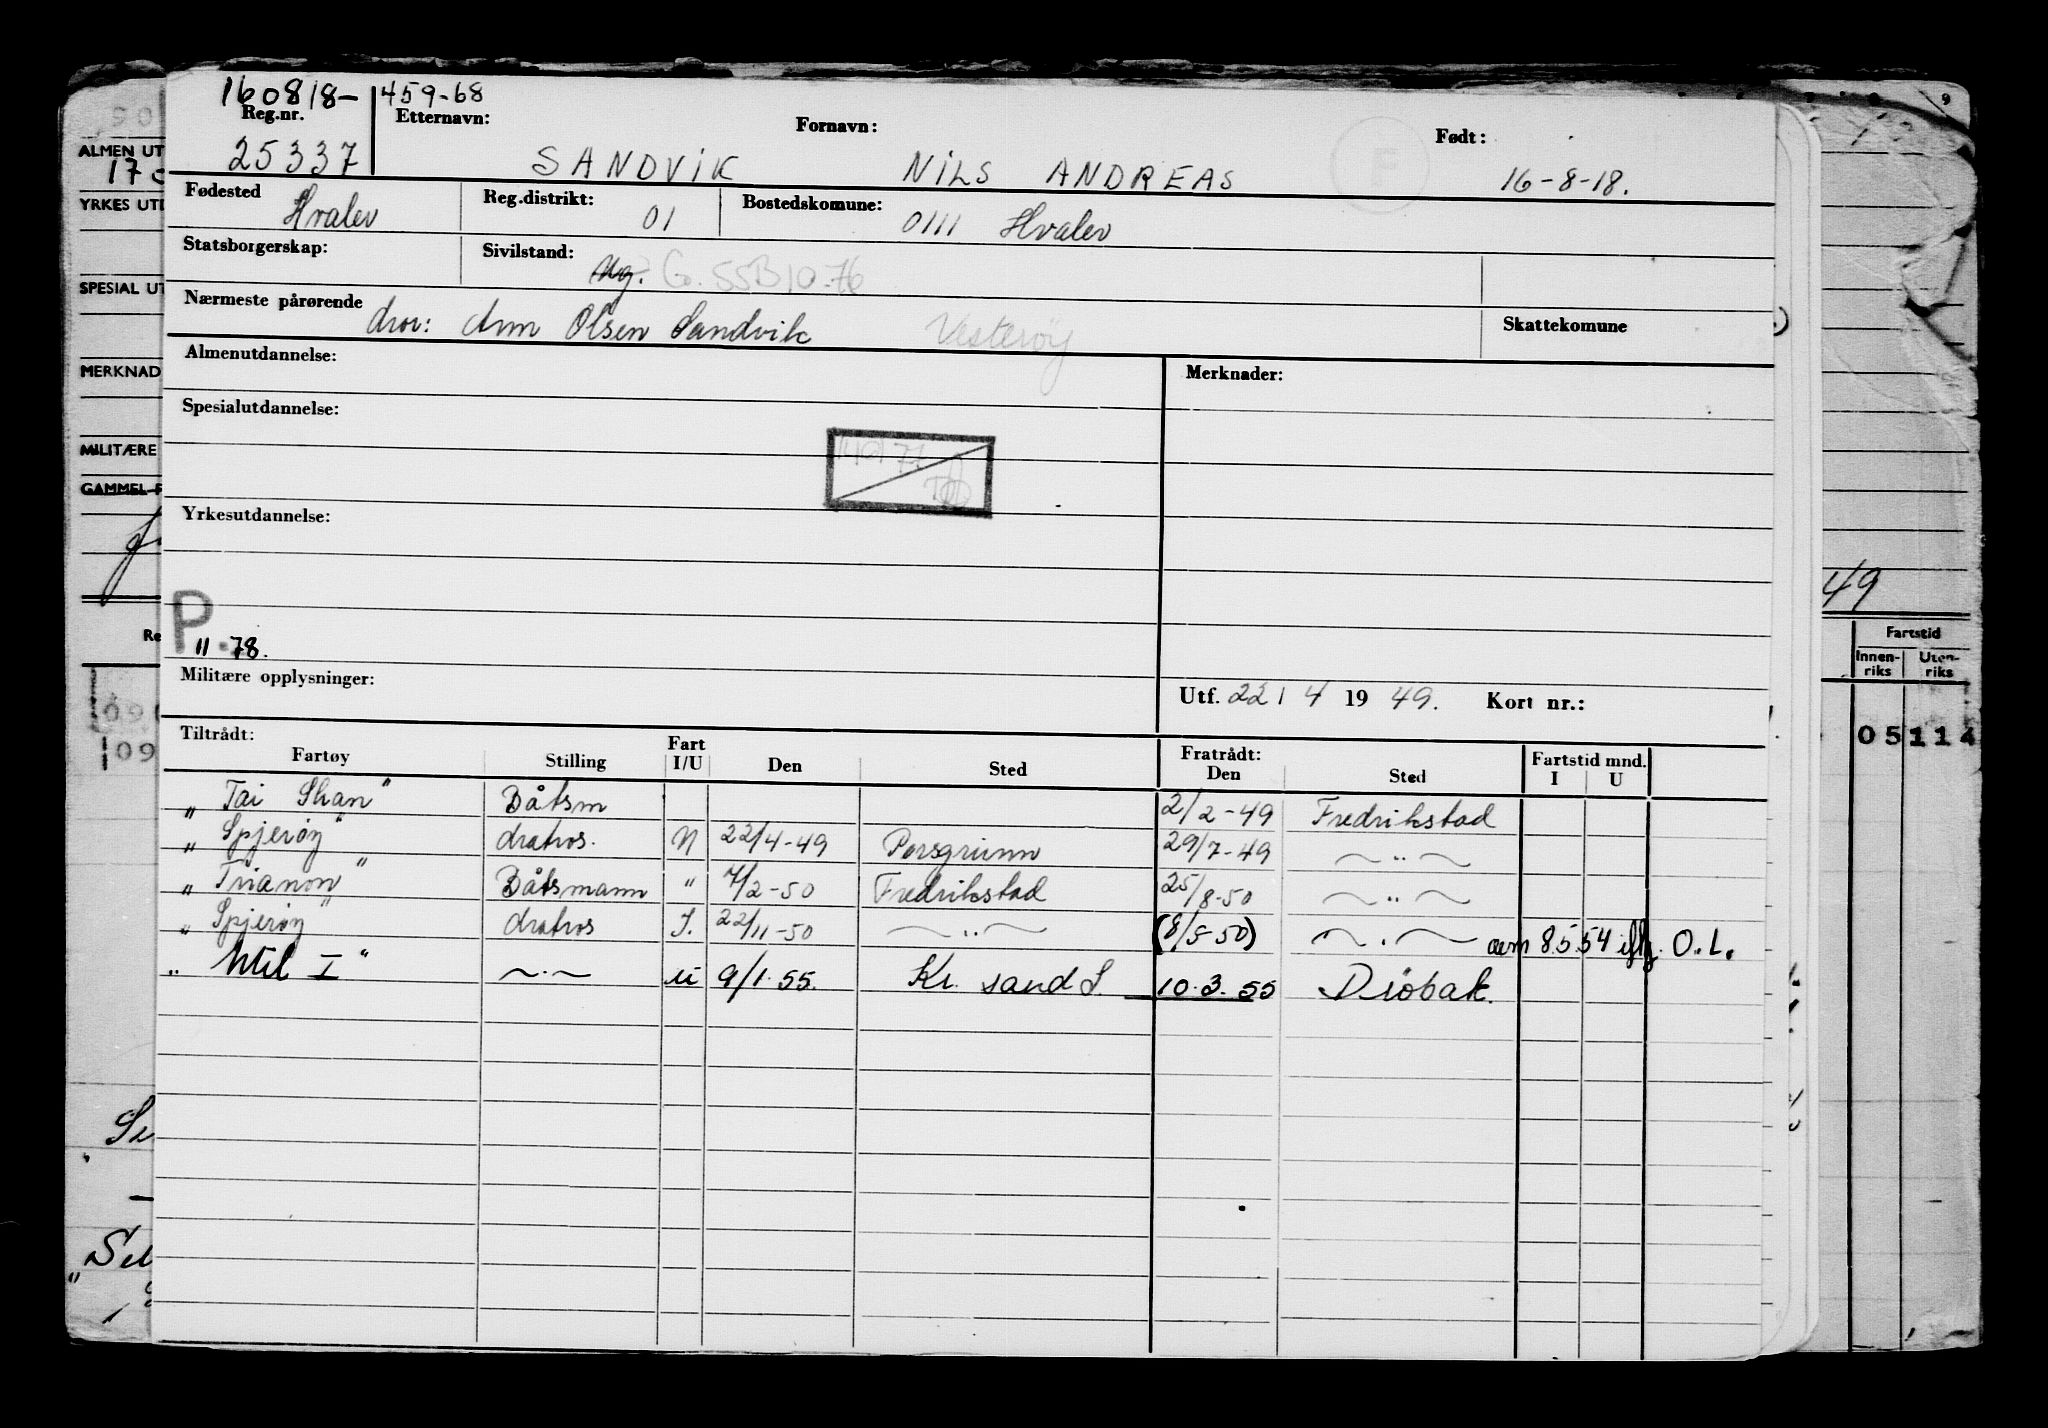 160818- 459-68
Reg.nr. Etternavn: Fornavn: Født:
25337 SANDVIK NILS ANDREAS 16-8-18.
Fødested Hvaler Reg.distrikt: 01 Bostedskomune: 0111 Hvaler
Statsborgerskap: Sivilstand: Ug. G. 55B10-76
Nærmeste pårørende Mor: Olsen Sandvik Vesterøy Skattekomune
Almenutdannelse: Merknader:
Spesialutdannelse:
Yrkesutdannelse:
P
11-78.
Militære opplysninger: Utf. 22/4 1949. Kort nr.:
Tiltrådt: Fratrådt:
Fartøy Stilling Fart I/U Den Sted Den Sted Fartstid mnd. I U
"Tai Shan" Båtsm 2/2-49 Fredrikstad
"Spjerøy" Matros. N 22/4-49 Porsgrunn 29/7-49 — " —
"Trianon" Båtsmann " 7/2-50 Fredrikstad 25/8-50 — " —
"Spjerøy" Matros I. 22/11-50 — " — (8/5-50) — " — 8554 O.L.
" I" — " — U 9/1.55. Kr. sand S. 10.3.55 Drøbak.
ALMEN UT
17
YRKES UTD
SPESIAL UT
MERKNAD
MILITÆRE
GAMMEL
Re
09
9
49
Fartstid
Innen-riks Uten-riks
05 114